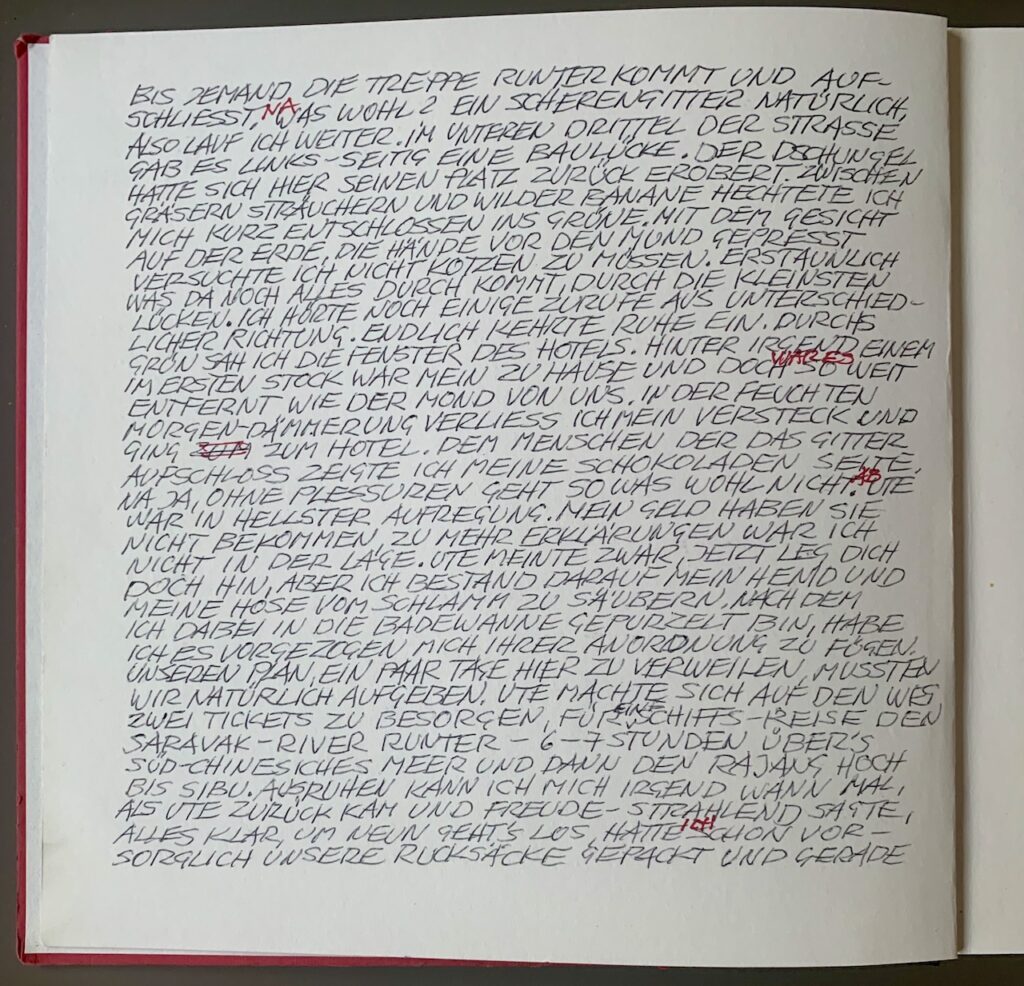 BIS JEMAND DIE TREPPE RUNTER KOMMT UND AUF-
SCHLIESST, NA WAS WOHL? EIN SCHERENGITTER NATÜRLICH,
ALSO LAUF ICH WEITER. IM UNTEREN DRITTEL DER STRASSE
GAB ES LINKS-SEITIG EINE BAULÜCKE. DER DSCHUNGEL
HATTE SICH HIER SEINEN PLATZ ZURÜCK EROBERT. ZWISCHEN
GRÄSERN STRÄUCHERN UND WILDER BANANE HECHTETE ICH
MICH KURZ ENTSCHLOSSEN INS GRÜNE. MIT DEM GESICHT
AUF DER ERDE, DIE HÄNDE VOR DEN MUND GEPRESST
VERSUCHTE ICH NICHT KOTZEN ZU MÜSSEN. ERSTAUNLICH
WAS DA NOCH ALLES DURCH KOMMT, DURCH DIE KLEINSTEN
LÜCKEN. ICH HÖRTE NOCH EINIGE ZURUFE AUS UNTERSCHIED-
LICHER RICHTUNG. ENDLICH KEHRTE RUHE EIN. DURCHS
GRÜN SAH ICH DIE FENSTER DES HOTELS. HINTER IRGEND EINEM
IM ERSTEN STOCK WAR MEIN ZU HAUSE UND DOCH WAR ES SO WEIT
ENTFERNT WIE DER MOND VON UNS. IN DER FEUCHTEN
MORGEN-DÄMMERUNG VERLIESS ICH MEIN VERSTECK UND
GING ZUM HOTEL. DEM MENSCHEN DER DAS GITTER
AUFSCHLOSS ZEIGTE ICH MEINE SCHOKOLADEN SEITE.
NA JA, OHNE PLESSUREN GEHT SO WAS WOHL NICHT AB. UTE
WAR IN HELLSTER AUFREGUNG. MEIN GELD HABEN SIE
NICHT BEKOMMEN, ZU MEHR ERKLÄRUNGEN WAR ICH
NICHT IN DER LAGE. UTE MEINTE ZWAR, JETZT LEG DICH
DOCH HIN, ABER ICH BESTAND DARAUF MEIN HEMD UND
MEINE HOSE VOM SCHLAMM ZU SÄUBERN. NACH DEM
ICH DABEI IN DIE BADEWANNE GEPURZELT BIN, HABE
ICH ES VORGEZOGEN MICH IHRER ANORDNUNG ZU FÜGEN.
UNSEREN PLAN, EIN PAAR TAGE HIER ZU VERWEILEN, MUSSTEN
WIR NATÜRLICH AUFGEBEN. UTE MACHTE SICH AUF DEN WEG
ZWEI TICKETS ZU BESORGEN, FÜR EINE SCHIFFS-REISE DEN
SARAVAK-RIVER RUNTER – 6–7 STUNDEN ÜBER'S
SÜD-CHINESICHES MEER UND DANN DEN RAJANG HOCH
BIS SIBU. AUSRUHEN KANN ICH MICH IRGEND WANN MAL,
ALS UTE ZURÜCK KAM UND FREUDE-STRAHLEND SAGTE,
ALLES KLAR, UM NEUN GEHT'S LOS, HATTE ICH SCHON VOR-
SORGLICH UNSERE RUCKSÄCKE GEPACKT UND GERADE